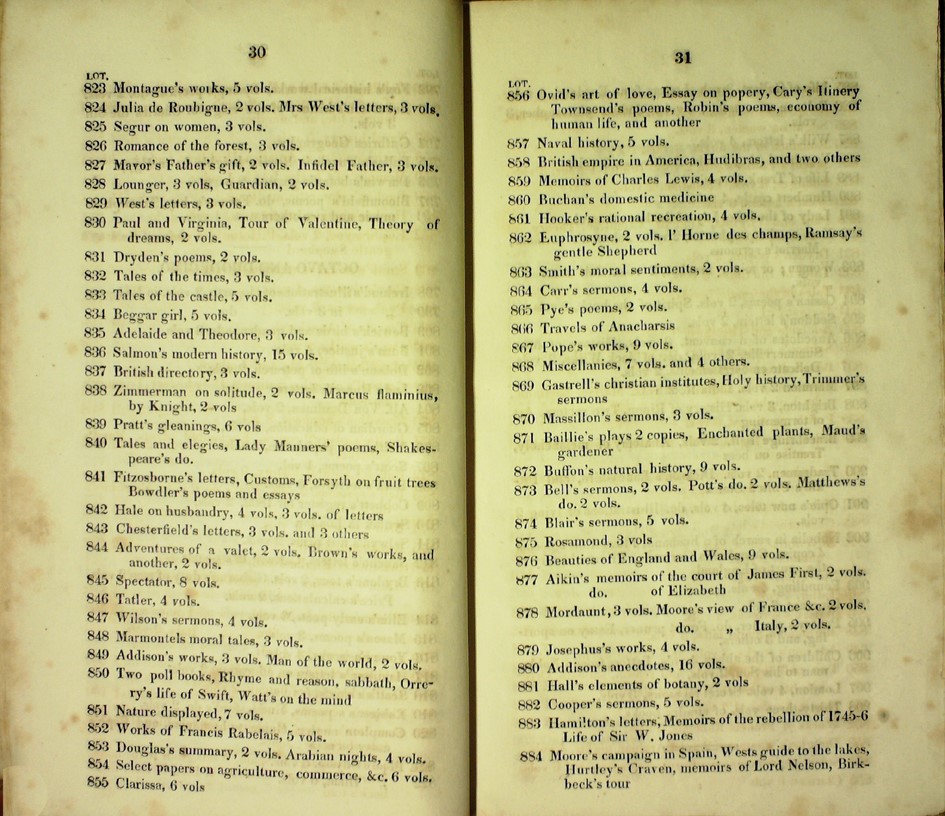 30
LOT.
823 Montague's works, 5 vols.
824 Julia de Roubigne, 2 vols. Mrs West's letters, 3 vols.
825 Segur on women, 3 vols.
826 Romance of the forest, 3 vols.
827 Mavor's Father's gift, 2 vols. Infidel Father, 3 vols.
828 Lounger, 3 vols, Guardian, 2 vols.
829 West's letters, 3 vols.
830 Paul and Virginia, Tour of Valentine, Theory of
dreams, 2 vols.
831 Dryden's poems, 2 vols.
832 Tales of the times, 3 vols.
833 Tales of the castle, 5 vols.
834 Beggar girl, 5 vols.
835 Adelaide and Theodore, 3 vols.
836 Salmon's modern history, 15 vols.
837 British directory, 3 vols.
838 Zimmerman on solitude, 2 vols. Marcus flaminius,
by Knight, 2 vols
839 Pratt's gleanings, 6 vols
840 Tales and elegies, Lady Manners' poems, Shakes-
peare's do.
841 Fitzosborne's letters, Customs, Forsyth on fruit trees
Bowdler's poems and essays
842 Hale on husbandry, 4 vols, 3 vols. of letters
843 Chesterfield's letters, 3 vols. and 3 others
844 Adventures of a valet, 2 vols. Brown's works, and
another, 2 vols.
845 Spectator, 8 vols.
846 Tatler, 4 vols.
847 Wilson's sermons, 4 vols.
848 Marmontels moral tales, 3 vols.
849 Addison's works, 3 vols. Man of the world, 2 vols.
850 Two poll books, Rhyme and reason, sabbath, Orre-
ry's life of Swift, Watt's on the mind
851 Nature displayed, 7 vols.
852 Works of Francis Rabelais, 5 vols.
853 Douglas's summary, 2 vols. Arabian nights, 4 vols.
854 Select papers on agriculture, commerce, &c. 6 vols.
855 Clarissa, 6 vols
31
LOT.
856 Ovid's art of love, Essay on popery, Cary's Itinery
Townsend's poems, Robin's poems, economy of
human life, and another
857 Naval history, 5 vols.
858 British empire in America, Hudibras, and two others
859 Memoirs of Charles Lewis, 4 vols.
860 Buchan's domestic medicine
861 Hooker's rational recreation, 4 vols.
862 Euphrosyne, 2 vols. l' Horne des champs, Ramsay's
gentle Shepherd
863 Smith's moral sentiments, 2 vols.
864 Carr's sermons, 4 vols.
865 Pye's poems, 2 vols.
866 Travels of Anacharsis
867 Pope's works, 9 vols.
868 Miscellanies, 7 vols. and 4 others.
869 Gastrell's christian institutes, Holy history, Trimmer's
sermons
870 Massillon's sermons, 3 vols.
871 Baillie's plays 2 copies, Enchanted plants, Maud's
gardener
872 Buffon's natural history, 9 vols.
873 Bell's sermons, 2 vols. Pott's do. 2 vols. Matthews's
do. 2 vols.
874 Blair's sermons, 5 vols.
875 Rosamond, 3 vols
876 Beauties of England and Wales, 9 vols.
877 Aikin's memoirs of the court of James First, 2 vols.
do. of Elizabeth
878 Mordaunt, 3 vols. Moore's view of France &c. 2 vols.
do. „ Italy, 2 vols.
879 Josephus's works, 4 vols.
880 Addison's anecdotes, 16 vols.
881 Hall's elements of botany, 2 vols
882 Cooper's sermons, 5 vols.
883 Hamilton's letters, Memoirs of the rebellion of 1745-6
Life of Sir W. Jones
884 Moore's campaign in Spain, Wests guide to the lakes,
Hurtley's Craven, memoirs of Lord Nelson, Birk-
beck's tour